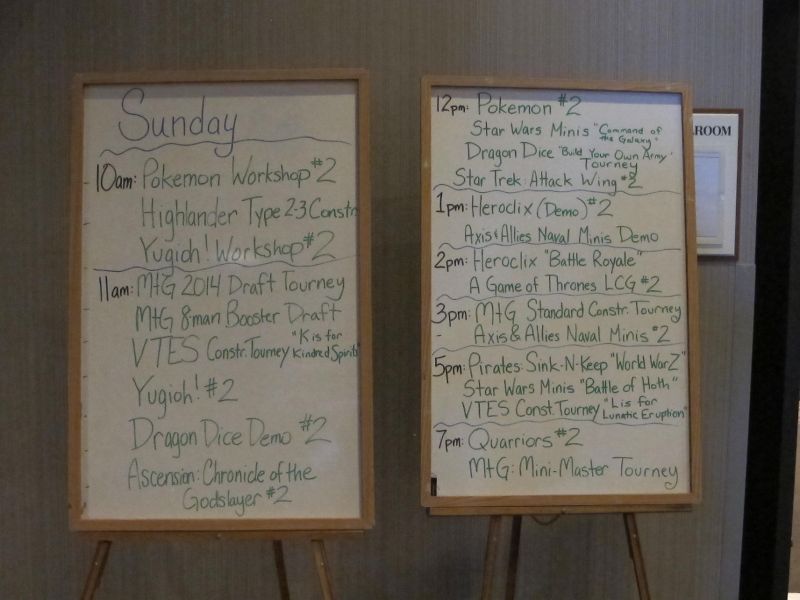 Sunday
10am: Pokemon Workshop #2
Highlander Type 2-3 Constr
Yugioh! Workshop #2
11am: MtG 2014 Draft Tourney
MtG 8-man Booster Draft
VTES Constr. Tourney "K is for
Kindred Spirits"
Yugioh! #2
Dragon Dice Demo #2
Ascension: Chronicle of the
Godslayer #2
12pm: Pokemon #2
Star Wars Minis "Command of
the Galaxy"
Dragon Dice "Build Your Own Army"
Tourney
Star Trek: Attack Wing #2
1pm: Heroclix (Demo) #2
Axis & Allies Naval Minis Demo
2pm: Heroclix "Battle Royale"
A Game of Thrones LCG #2
3pm: MtG Standard Constr. Tourney
- Axis & Allies Naval Minis #2
5pm: Pirates: Sink-N-Keep "World War Z"
Star Wars Minis "Battle of Hoth"
VTES Const. Tourney "L is for
Lunatic Eruption"
7pm: Quarriors #2
MtG: Mini-Master Tourney
ROOM